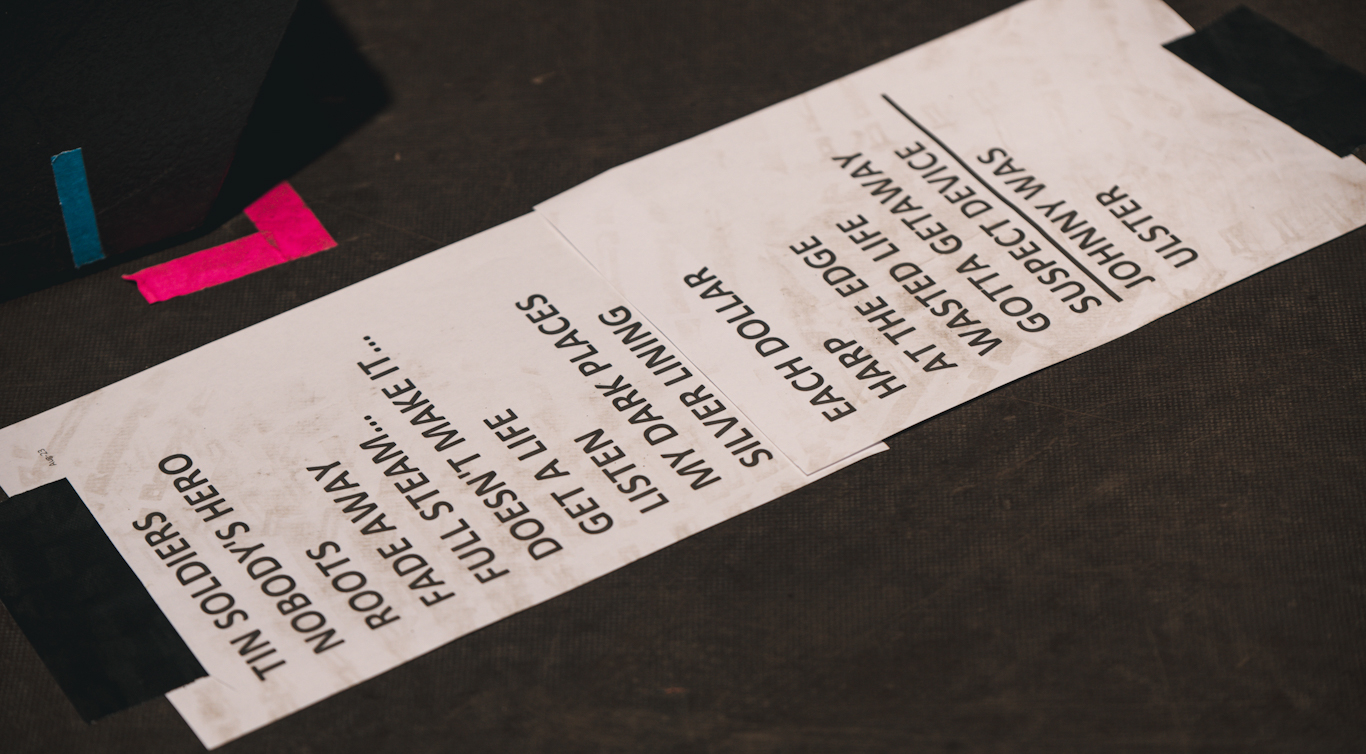 Aug-23
TIN SOLDIERS
NOBODY'S HERO
ROOTS
FADE AWAY
FULL STEAM...
DOESN'T MAKE IT...
GET A LIFE
LISTEN
MY DARK PLACES
SILVER LINING
EACH DOLLAR
HARP
AT THE EDGE
WASTED LIFE
GOTTA GETAWAY
SUSPECT DEVICE
JOHNNY WAS
ULSTER